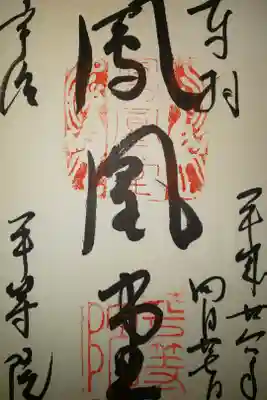 奉拝
平成廿六年
四月廿七日
鳳凰堂
宇治
平等院